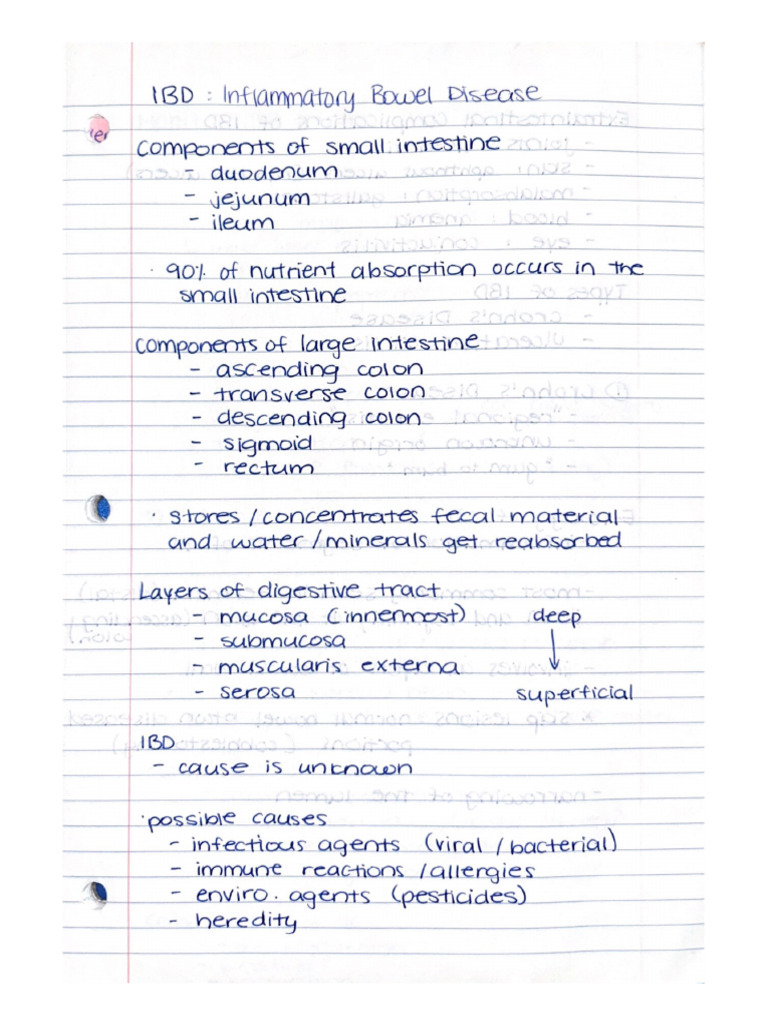 IBD : Inflammatory Bowel Disease
er
components of small intestine
- duodenum
- jejunum
- ileum
· 90% of nutrient absorption occurs in the
small intestine
components of large intestine
- ascending colon
- transverse colon
- descending colon
- sigmoid
- rectum
· stores / concentrates fecal material
and water / minerals get reabsorbed
Layers of digestive tract
- mucosa (innermost) deep
- submucosa
- muscularis externa
- serosa superficial
IBD
- cause is unknown
· possible causes
- infectious agents (viral / bacterial)
- immune reactions / allergies
- enviro. agents (pesticides)
- heredity